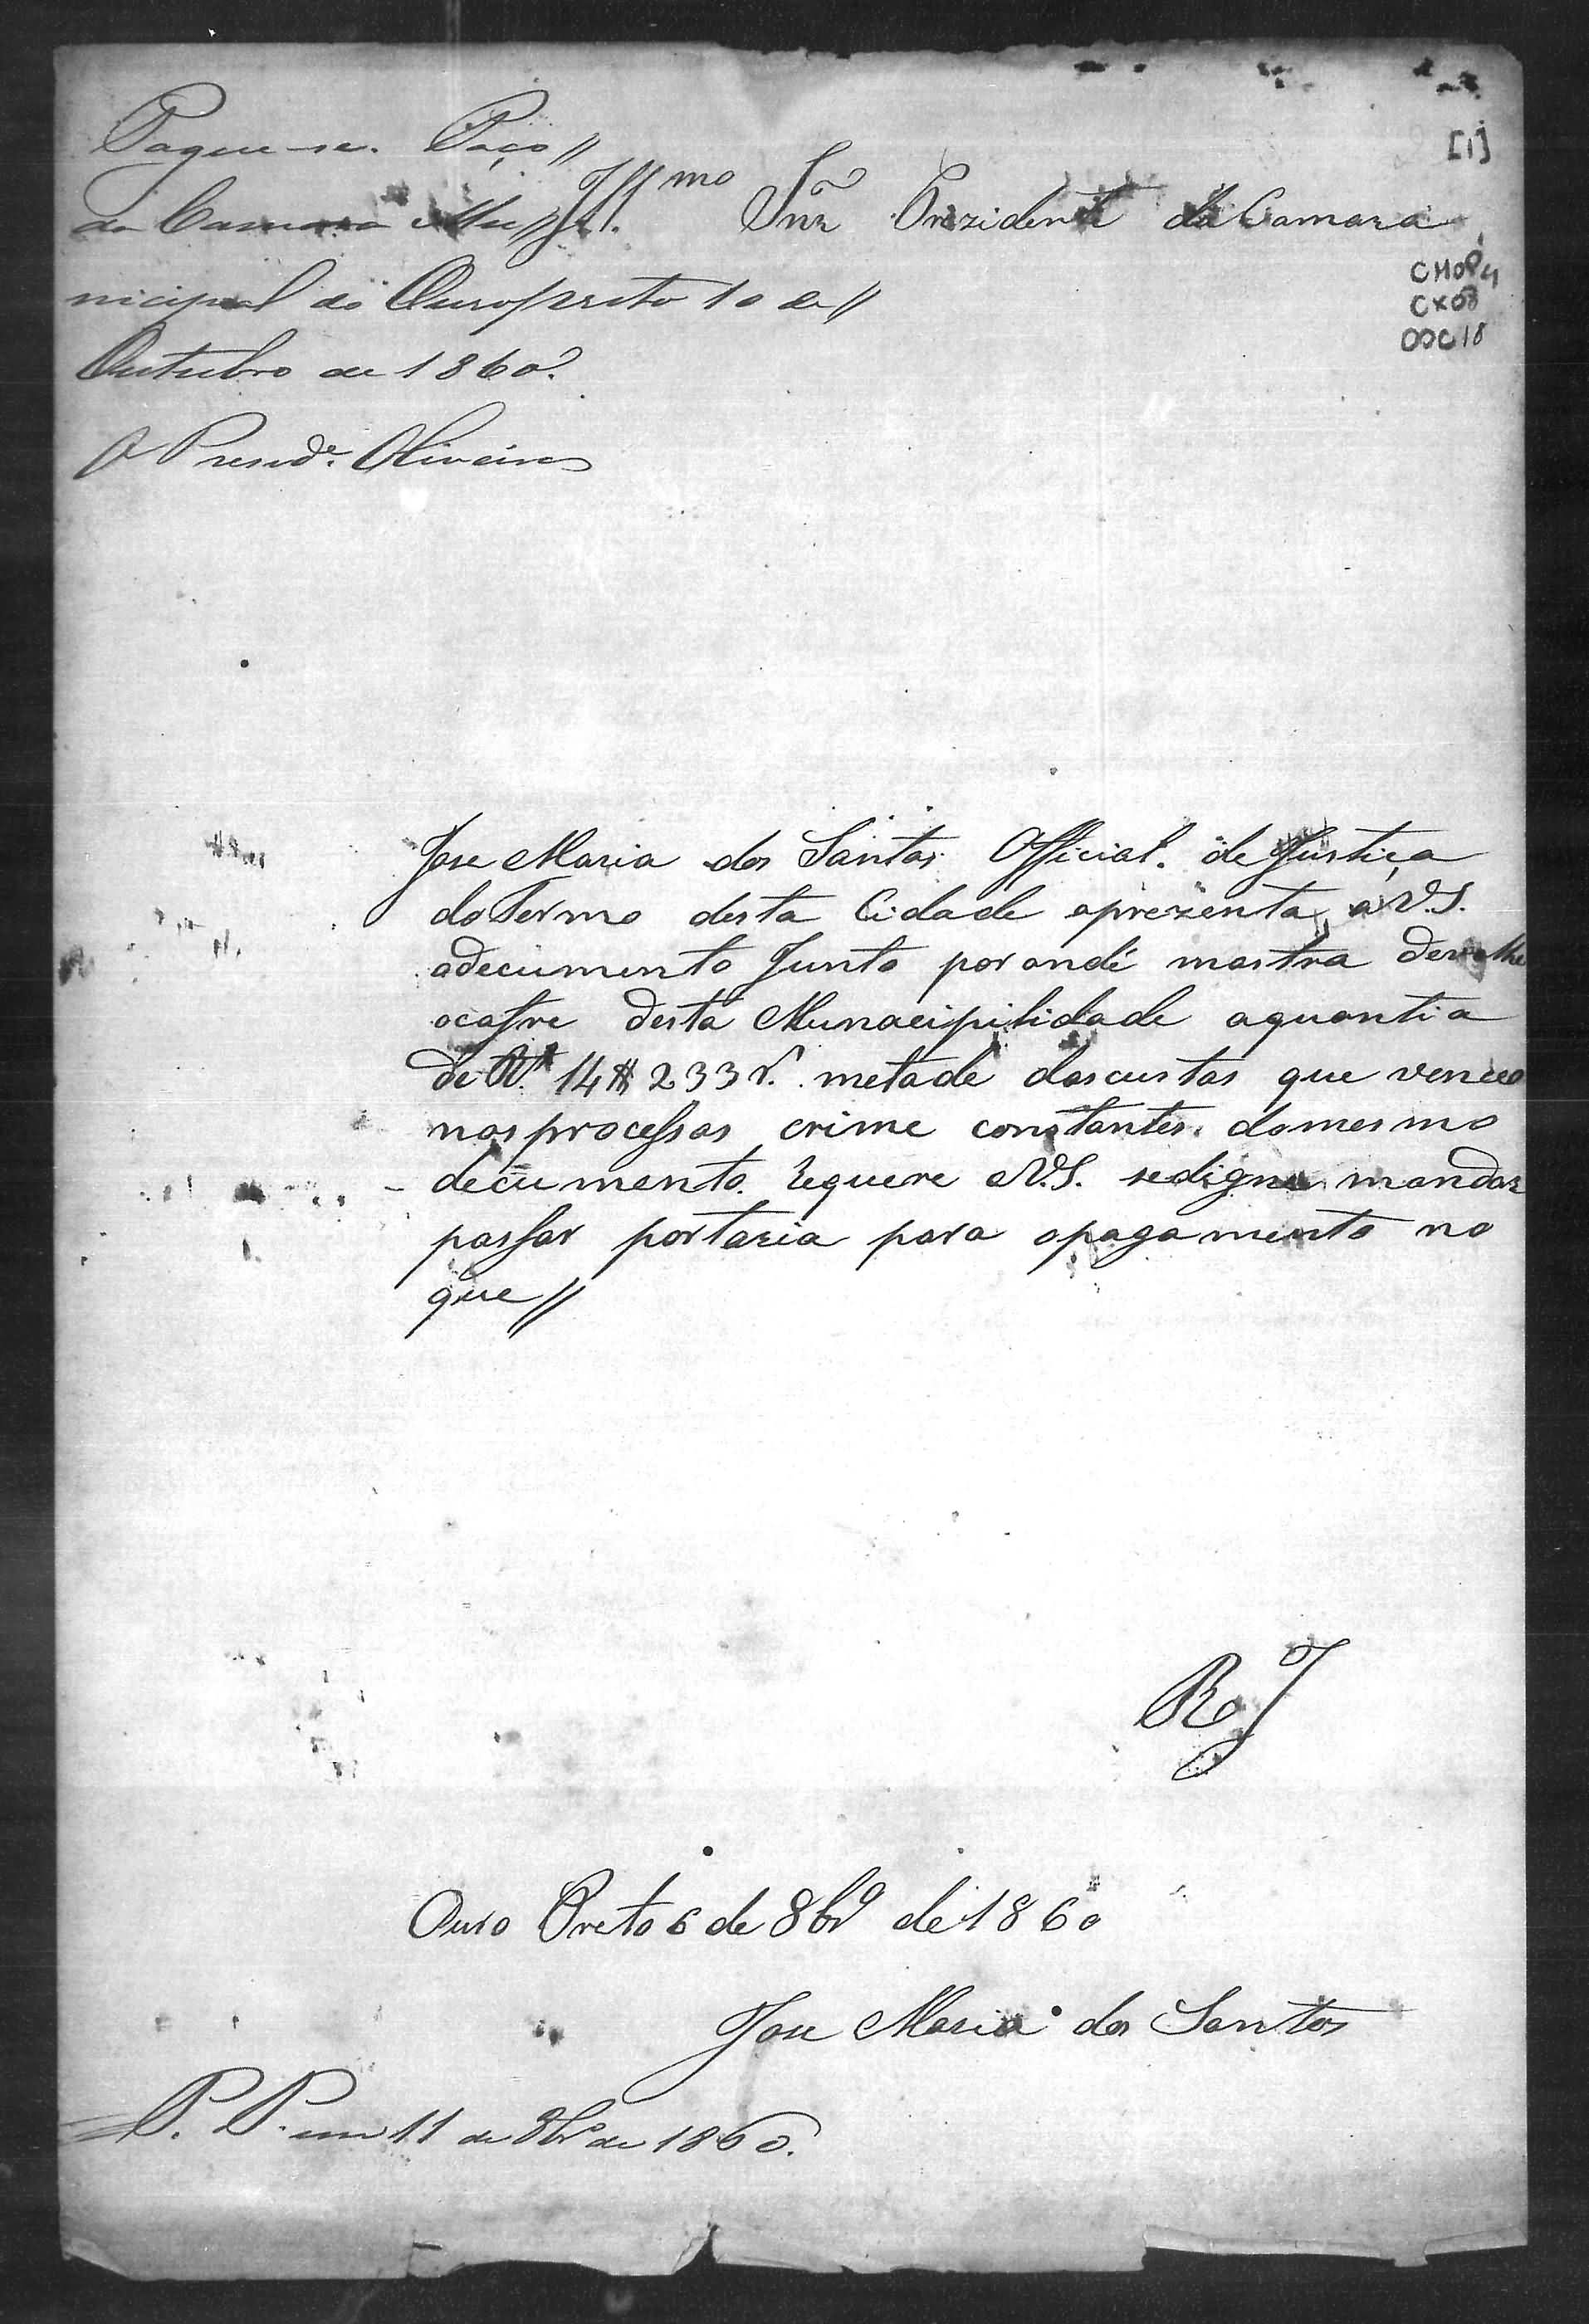 Pague-se. Paço //
da Camara Mu//
nicipal do Ouropreto 10 de //
Outubro de 1860.
O Presid.e Oliveira
[1]
Ill.mo Snr Prezidente da Camara
CMOP
CX08
DOC18
Jose Maria dos Santos Official. de Justiça
do Termo desta Cidade aprezenta, a V.S.
odecumento Junto por onde mostra
ocofre desta aquantia
de R.s 14#233 r.s metade dascustas que venceo
nos processos crime constantes. domesmo
decumento. requere A V.S. sedigne mandar
passar portaria para opagamento no
que //
R J
Ouro Preto 6 de 8br.o de 1860
Jose Maria dos Santos
P. P. em 11 de 8br.o de 1860.